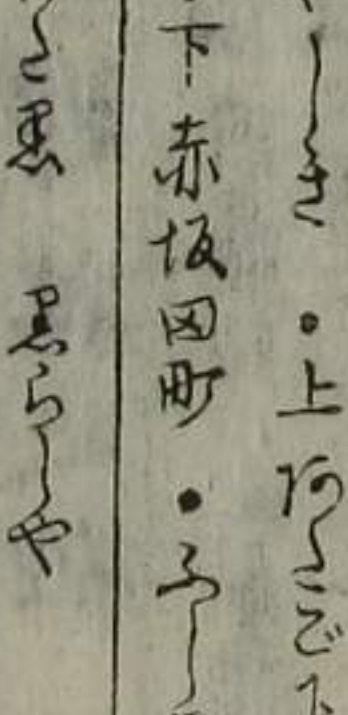 しき ●上 阿たご下
下 赤坂田町 ●ふし
黒 黒らしや